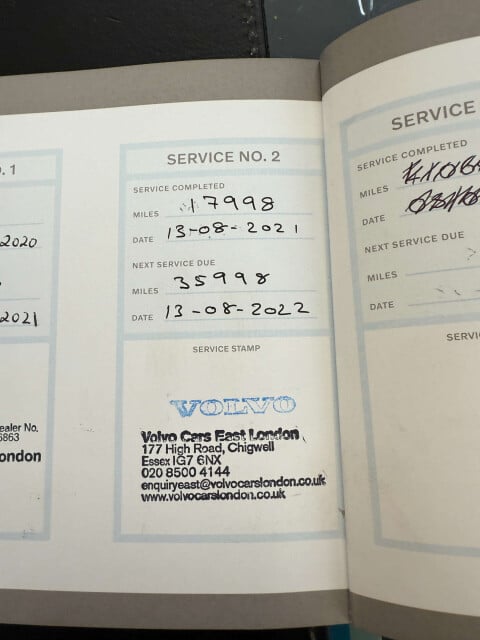 . 1
2020
2021
ealer No.
5863
ondon
SERVICE NO. 2
SERVICE COMPLETED
MILES 17998
DATE 13-08-2021
NEXT SERVICE DUE
MILES 35998
DATE 13-08-2022
SERVICE STAMP
VOLVO
Volvo Cars East London
177 High Road, Chigwell
Essex IG7 6NX
020 8500 4144
enquiryeast@volvocarslondon.co.uk
www.volvocarslondon.co.uk
SERVICE
SERVICE COMPLETED
MILES
DATE
NEXT SERVICE DUE
MILES
DATE
SERVI